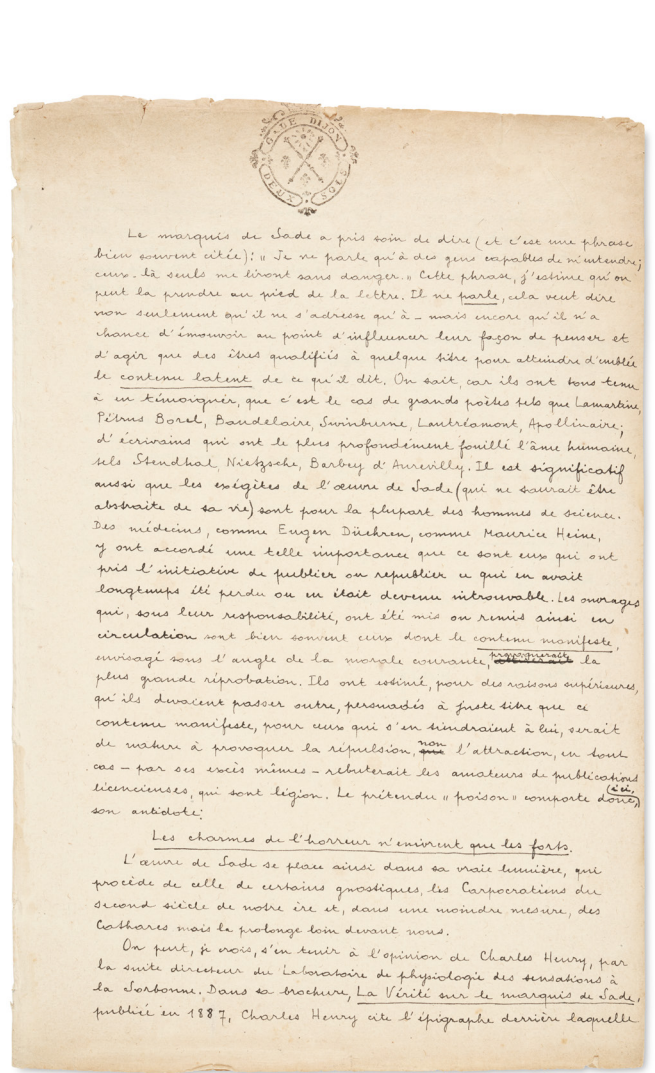 GALE DIJON
DEUX SOLS
Le marquis de Sade a pris soin de dire (et c'est une phrase
bien souvent citée): "Je ne parle qu'à des gens capables de m'entendre;
ceux-là seuls me liront sans danger." Cette phrase, j'estime qu'on
peut la prendre au pied de la lettre. Il ne parle, cela veut dire
non seulement qu'il ne s'adresse qu'à – mais encore qu'il n'a
chance d'émouvoir au point d'influencer leur façon de penser et
d'agir que des êtres qualifiés à quelque titre pour atteindre d'emblée
le contenu latent de ce qu'il dit. On sait, car ils ont tous tenu
à en témoigner, que c'est le cas de grands poètes tels que Lamartine,
Pétrus Borel, Baudelaire, Swinburne, Lautréamont, Apollinaire;
d'écrivains qui ont le plus profondément fouillé l'âme humaine,
tels Stendhal, Nietzsche, Barbey d'Aurevilly. Il est significatif
aussi que les exégètes de l'œuvre de Sade (qui ne saurait être
abstraite de sa vie) sont pour la plupart des hommes de science.
Des médecins, comme Eugen Düehren, comme Maurice Heine,
y ont accordé une telle importance que ce sont eux qui ont
pris l'initiative de publier ou republier ce qui en avait
longtemps été perdu ou en était devenu introuvable. Les ouvrages
qui, sous leur responsabilité, ont été mis ou remis ainsi en
circulation sont bien souvent ceux dont le contenu manifeste,
envisagé sous l'angle de la morale courante, provoquerait la
plus grande réprobation. Ils ont estimé, pour des raisons supérieures,
qu'ils devaient passer outre, persuadés à juste titre que ce
contenu manifeste, pour ceux qui s'en tiendraient à lui, serait
de nature à provoquer la répulsion, non l'attraction, en tout
cas – par ses excès mêmes – rebuterait les amateurs de publications
licencieuses, qui sont légion. Le prétendu "poison" comporte donc, (ici,)
son antidote:
Les charmes de l'horreur n'enivrent que les forts.
L'œuvre de Sade se place ainsi dans sa vraie lumière, qui
procède de celle de certains gnostiques, les Carpocratiens du
second siècle de notre ère et, dans une moindre mesure, des
Cathares mais la prolonge loin devant nous.
On peut, je crois, s'en tenir à l'opinion de Charles Henry, par
la suite directeur du Laboratoire de physiologie des sensations à
la Sorbonne. Dans sa brochure, La Vérité sur le marquis de Sade,
publiée en 1887, Charles Henry cite l'épigraphe derrière laquelle